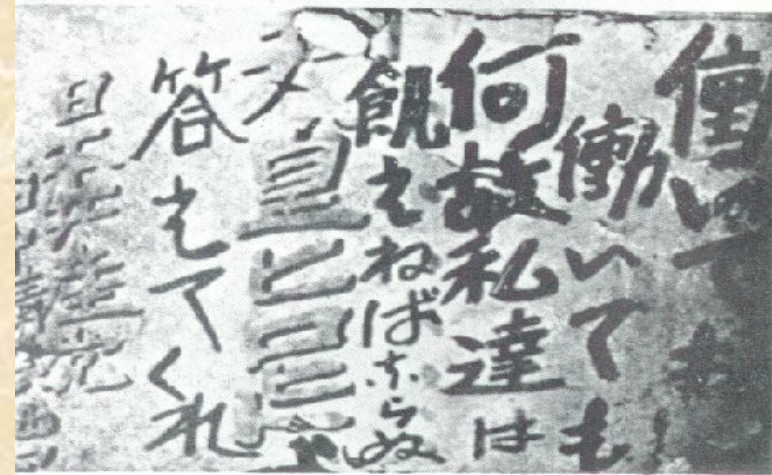 働いても
働いても
何故私達は
飢えねばならぬ
天皇ヒロヒト
答えてくれ
日本共産党